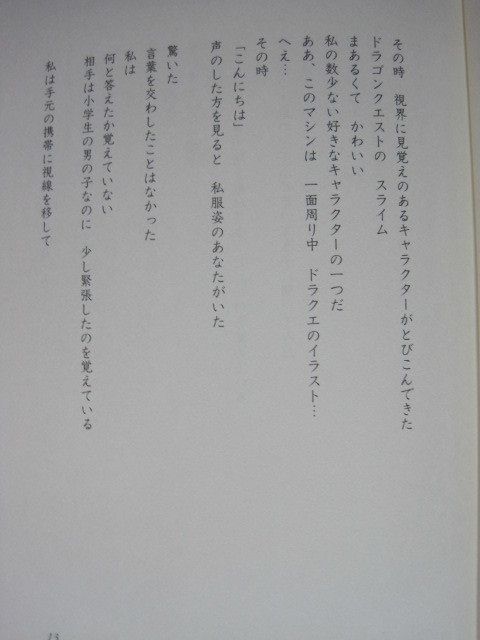 その時　視界に見覚えのあるキャラクターがとびこんできた
ドラゴンクエストの　スライム
まあるくて　かわいい
私の数少ない好きなキャラクターの一つだ
ああ、このマシンは　一面周り中　ドラクエのイラスト…
へぇ…
その時
「こんにちは」
声のした方を見ると　私服姿のあなたがいた
驚いた
言葉を交わしたことはなかった
私は
何と答えたか覚えていない
相手は小学生の男の子なのに　少し緊張したのを覚えている
私は手元の携帯に視線を移して
13